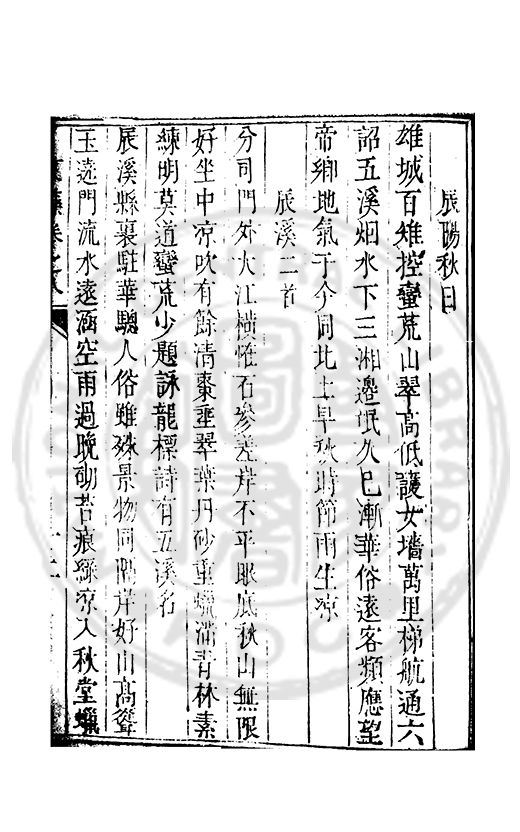 辰陽秋日
雄城百雉控蠻荒山翠高低護女墻萬里梯航通六
詔五溪烟水下三湘邊氓久已漸華俗遠客類應望
帝鄉地氣于今同北土早秋時節雨生凉
辰溪二首
分司門外大江橫恠石參差岸不平眼底秋山無限
好坐中凉吹有餘清棗垂翠葉丹砂重蠟滿青林素
練明莫道蠻荒少題詠龍標詩有五溪名
辰溪縣襄駐華驄人俗雖殊景物同隔岸好山高聳
玉遶門流水遠涵空雨過晚砌苔痕綠凉入秋堂蠟